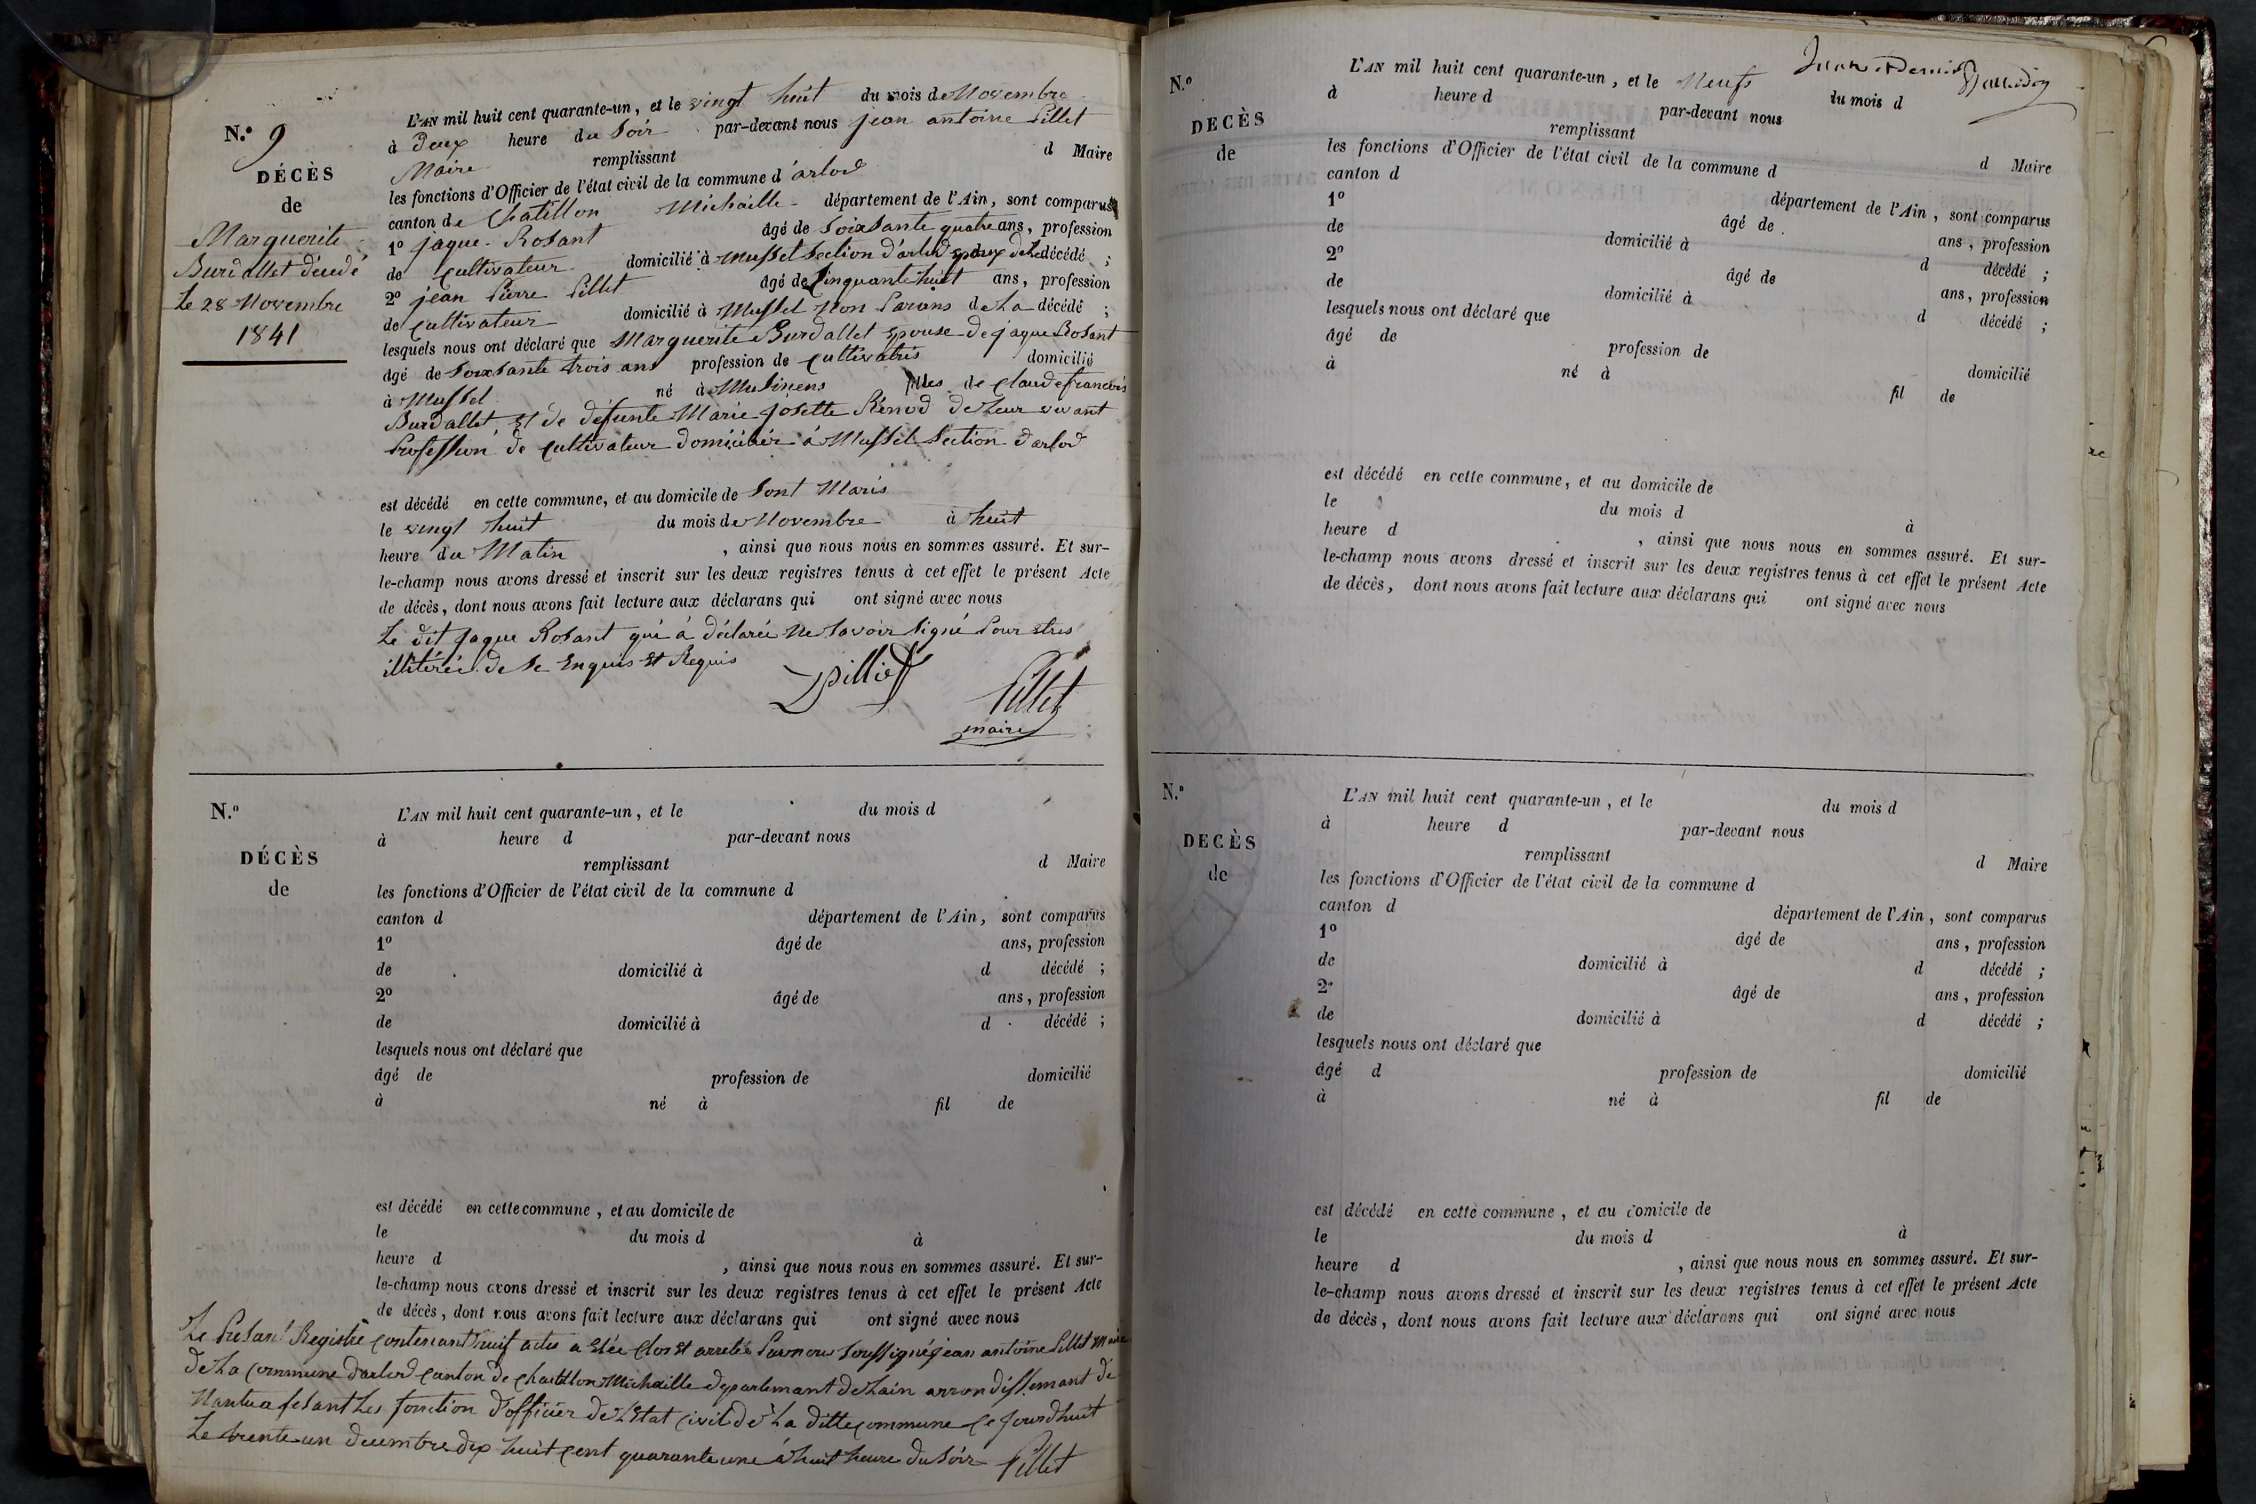 N.º 9
DÉCÈS
de
Marguerite
Burdallet décédé
Le 28 Novembre
1841
L'AN mil huit cent quarante-un, et le vingt huit du mois de Novembre
à deux heure du Soir par-devant nous jean antoine Pillet
Maire remplissant d Maire
les fonctions d'Officier de l'état civil de la commune d'arlod
canton de Chatillon Michaille département de l'Ain, sont comparus
1º jaque Rosant âgé de Soixsante quatre ans, profession
de Cultivateur domicilié à Mussel Section d'arlod Epoux de La décédé ;
2º jean Pierre Pillet âgé de Cinquante huit ans, profession
de Cultivateur domicilié à Mussel Non Parans de La décédé ;
lesquels nous ont déclaré que Marguerite Burdallet Epouse de jaque Rosant
âgé de Soixsante trois ans profession de Cultivatris domicilié
à Mussel né à Musinens filles de Claude francois
Burdallet Et de défunte Marie josette Rénod de Leur vivant
Profession de Cultivateur domiciliér á Mussel Section d'arlod
est décédé en cette commune, et au domicile de Sont Maris
le vingt huit du mois de Novembre à huit
heure du Matin , ainsi que nous nous en sommes assuré. Et sur-
le-champ nous avons dressé et inscrit sur les deux registres tenus à cet effet le présent Acte
de décès, dont nous avons fait lecture aux déclarans qui ont signé avec nous
Le dit jaque Rosant qui á déclarée Ne Savoir Signé Pour
illitérée de Se Enquis Et Requis
Pillet
Pillet
maire
N.º
DÉCÈS
de
L'AN mil huit cent quarante-un, et le du mois d
à heure d par-devant nous
remplissant d Maire
les fonctions d'Officier de l'état civil de la commune d
canton d département de l'Ain, sont comparus
1º âgé de ans, profession
de domicilié à d décédé ;
2º âgé de ans, profession
de domicilié à d décédé ;
lesquels nous ont déclaré que
âgé de profession de domicilié
à né à fil de
est décédé en cette commune, et au domicile de
le du mois d à
heure d , ainsi que nous nous en sommes assuré. Et sur-
le-champ nous avons dressé et inscrit sur les deux registres tenus à cet effet le présent Acte
de décès, dont nous avons fait lecture aux déclarans qui ont signé avec nous
Le Presant Registre Contenant actes a Etée Clos Et arretée Par nous Soussigné jean antoine Pillet Maire
de La Commune d'arlod Canton de Chatillon Michaille departemant de Lain arrondissemant de
Nantua fesant Les fonction d'officier de L'Etat Civil de La ditte Commune Ce jourdhuit
Le trente un decembre dix huit Cent quarante une á huit heure du Soir Pillet
Neufs
N.º
DECÈS
de
L'AN mil huit cent quarante-un, et le du mois d
à heure d par-devant nous
remplissant d Maire
les fonctions d'Officier de l'état civil de la commune d
canton d département de l'Ain, sont comparus
1º âgé de ans, profession
de domicilié à d décédé ;
2º âgé de ans, profession
de domicilié à d décédé ;
lesquels nous ont déclaré que
âgé de profession de domicilié
à né à fil de
est décédé en cette commune, et au domicile de
le du mois d à
heure d , ainsi que nous nous en sommes assuré. Et sur-
le-champ nous avons dressé et inscrit sur les deux registres tenus à cet effet le présent Acte
de décès, dont nous avons fait lecture aux déclarans qui ont signé avec nous
N.º
DECÈS
de
L'AN mil huit cent quarante-un, et le du mois d
à heure d par-devant nous
remplissant d Maire
les fonctions d'Officier de l'état civil de la commune d
canton d département de l'Ain, sont comparus
1º âgé de ans, profession
de domicilié à d décédé ;
2º âgé de ans, profession
de domicilié à d décédé ;
lesquels nous ont déclaré que
âgé d profession de domicilié
à né à fil de
est décédé en cette commune, et au domicile de
le du mois d à
heure d , ainsi que nous nous en sommes assuré. Et sur-
le-champ nous avons dressé et inscrit sur les deux registres tenus à cet effet le présent Acte
de décès, dont nous avons fait lecture aux déclarans qui ont signé avec nous